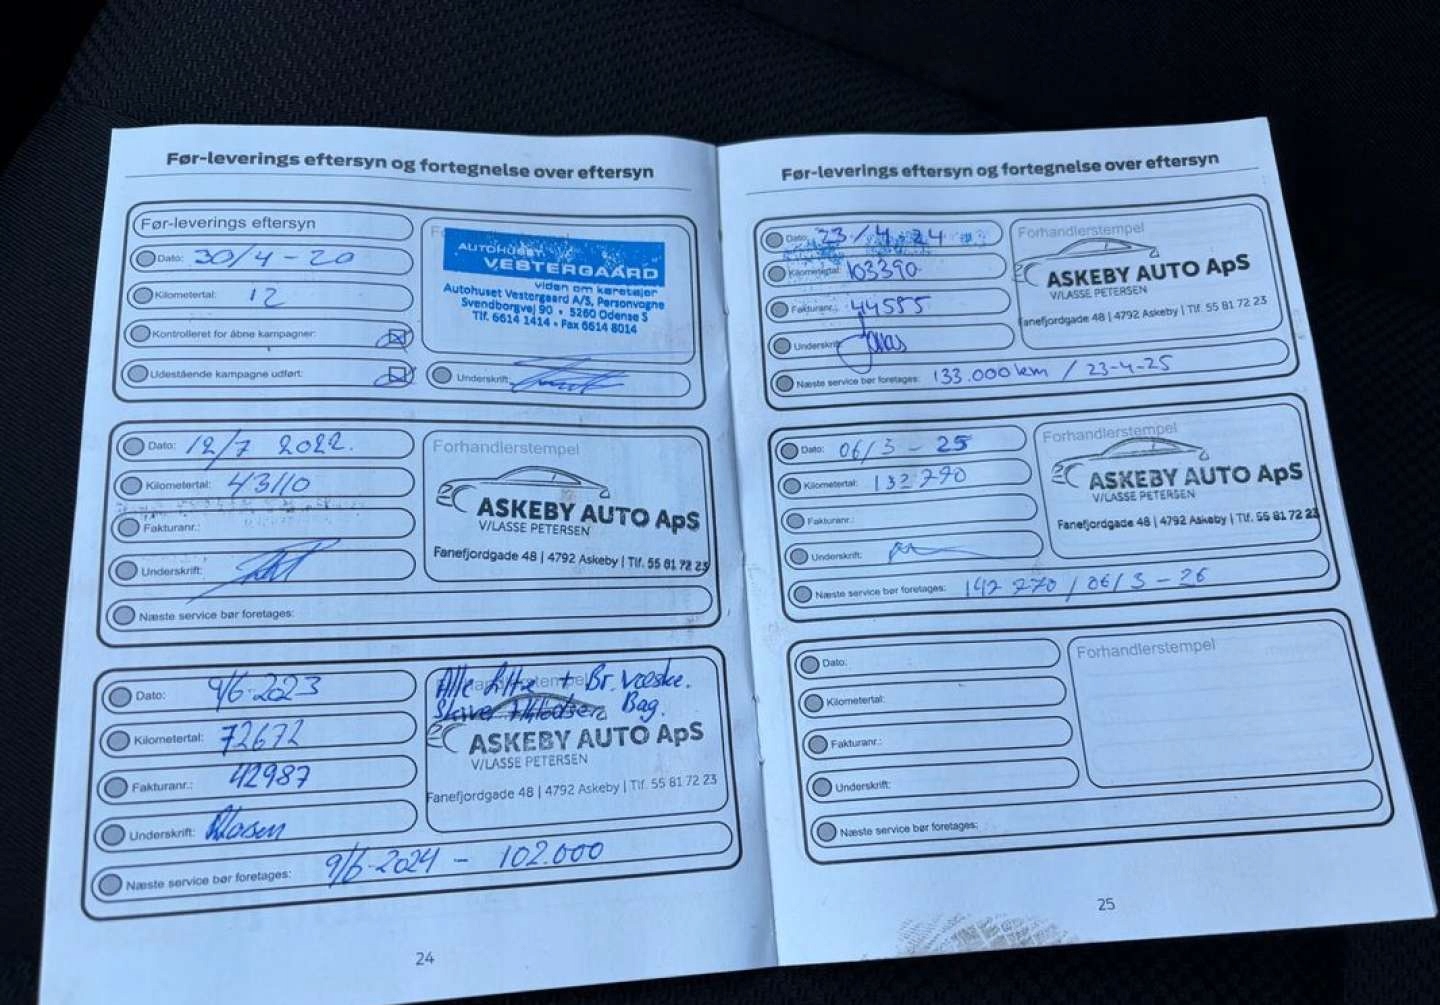 Før-leverings eftersyn og fortegnelse over eftersyn
Før-leverings eftersyn
Dato: 30/4-20
Kilometertal: 12
Kontrolleret for åbne kampagner:
Udestående kampagne udført:
AUTOHUSET
VESTERGAARD
viden om køretøjer
Autohuset Vestergaard A/S, Personvogne
Svendborgvej 90 • 5260 Odense S
Tlf. 6614 1414 • Fax 6614 8014
Underskrift:
Dato: 12/7 2022.
Kilometertal: 43110
Fakturanr.:
Underskrift:
Næste service bør foretages:
Forhandlerstempel
ASKEBY AUTO ApS
V/LASSE PETERSEN
Fanefjordgade 48 | 4792 Askeby | Tlf. 55 81 72 23
Dato: 9/6-2023
Kilometertal: 72672
Fakturanr.: 42987
Underskrift:
Næste service bør foretages: 9/6-2024 - 102.000
Alle filtre + Br. Væske.
Skiver Bag.
ASKEBY AUTO ApS
V/LASSE PETERSEN
Fanefjordgade 48 | 4792 Askeby | Tlf. 55 81 72 23
24
Før-leverings eftersyn og fortegnelse over eftersyn
Dato: 23/4-24
Kilometertal: 103390
Fakturanr.: 44555
Underskrift: Jonas
Næste service bør foretages: 133.000km / 23-4-25
Forhandlerstempel
ASKEBY AUTO ApS
V/LASSE PETERSEN
Fanefjordgade 48 | 4792 Askeby | Tlf. 55 81 72 23
Dato: 06/3-25
Kilometertal: 132770
Fakturanr.:
Underskrift:
Næste service bør foretages: 142 770 / 06/3-26
Forhandlerstempel
ASKEBY AUTO ApS
V/LASSE PETERSEN
Fanefjordgade 48 | 4792 Askeby | Tlf. 55 81 72 23
Dato:
Kilometertal:
Fakturanr.:
Underskrift:
Næste service bør foretages:
Forhandlerstempel
25